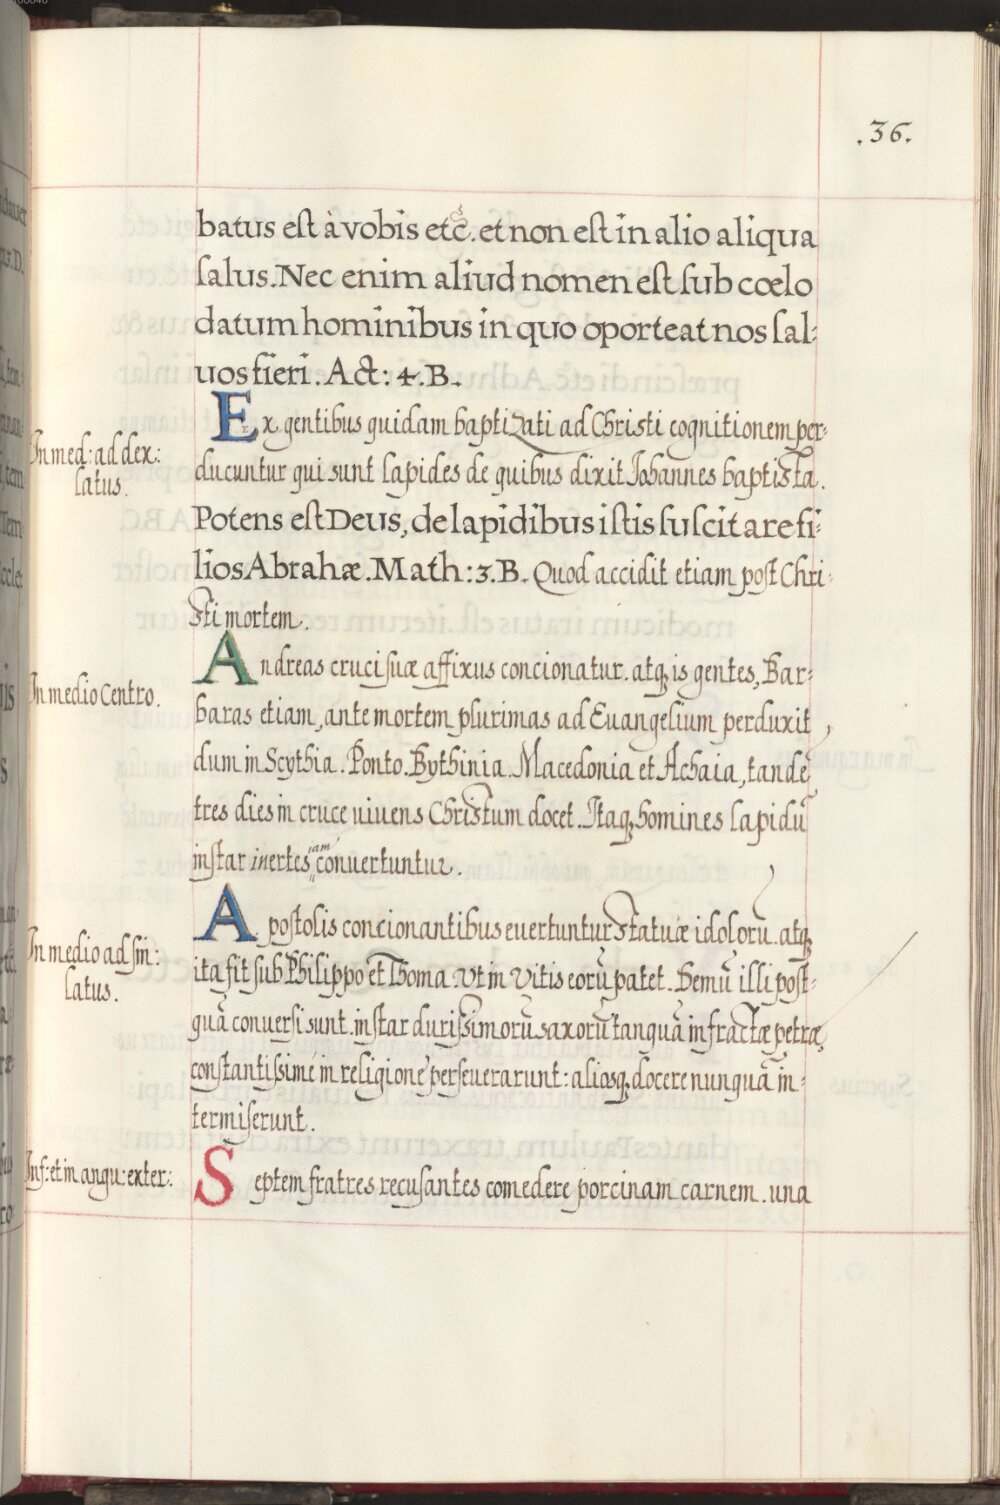 .36.
batus est à vobis etc̃. et non est in alio aliqua
salus. Nec enim aliud nomen est sub cœlo
datum hominibus in quo oporteat nos sal:
uos fieri. Act: 4. B.
In med: ad dex:
latus.
Ex gentibus quidam baptizati ad Christi cognitionem per:
ducuntur qui sunt lapides de quibus dixit Iohannes baptista.
Potens est Deus, de lapidibus istis suscitare fi:
lios Abrahæ. Math: 3. B. Quod accidit etiam post Chri:
sti mortem.
In medio Centro.
Andreas cruci suæ affixus concionatur. atq; is gentes, Bar:
baras etiam, ante mortem plurimas ad Euangelium perduxit,
dum in Scythia. Ponto. Bythinia. Macedonia et Achaia, tandẽ
tres dies in cruce uiuens Christum docet. Itaq; homines lapidũ
instar inertes iam conuertuntur.
In medio ad sin:
latus.
Apostolis concionantibus euertuntur statuæ idolorũ. atq;
ita fit sub Philippo et Thoma. Vt in Vitis eorũ patet. Demũ illi post:
quã conuersi sunt. instar durissimorũ saxorũ tanquã infractæ petræ,
constantissimè in religione perseuerarunt: aliosq; docere nunquã in:
termiserunt.
Inf: et in angu: exter:
Septem fratres recusantes comedere porcinam carnem. una